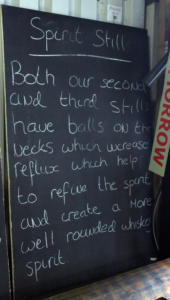 Spirit Still
Both our second
and third stills
have balls on the
necks which increase
reflux which help
to refine the spirit
and create a more
well rounded whiskey
spirit
MORROW